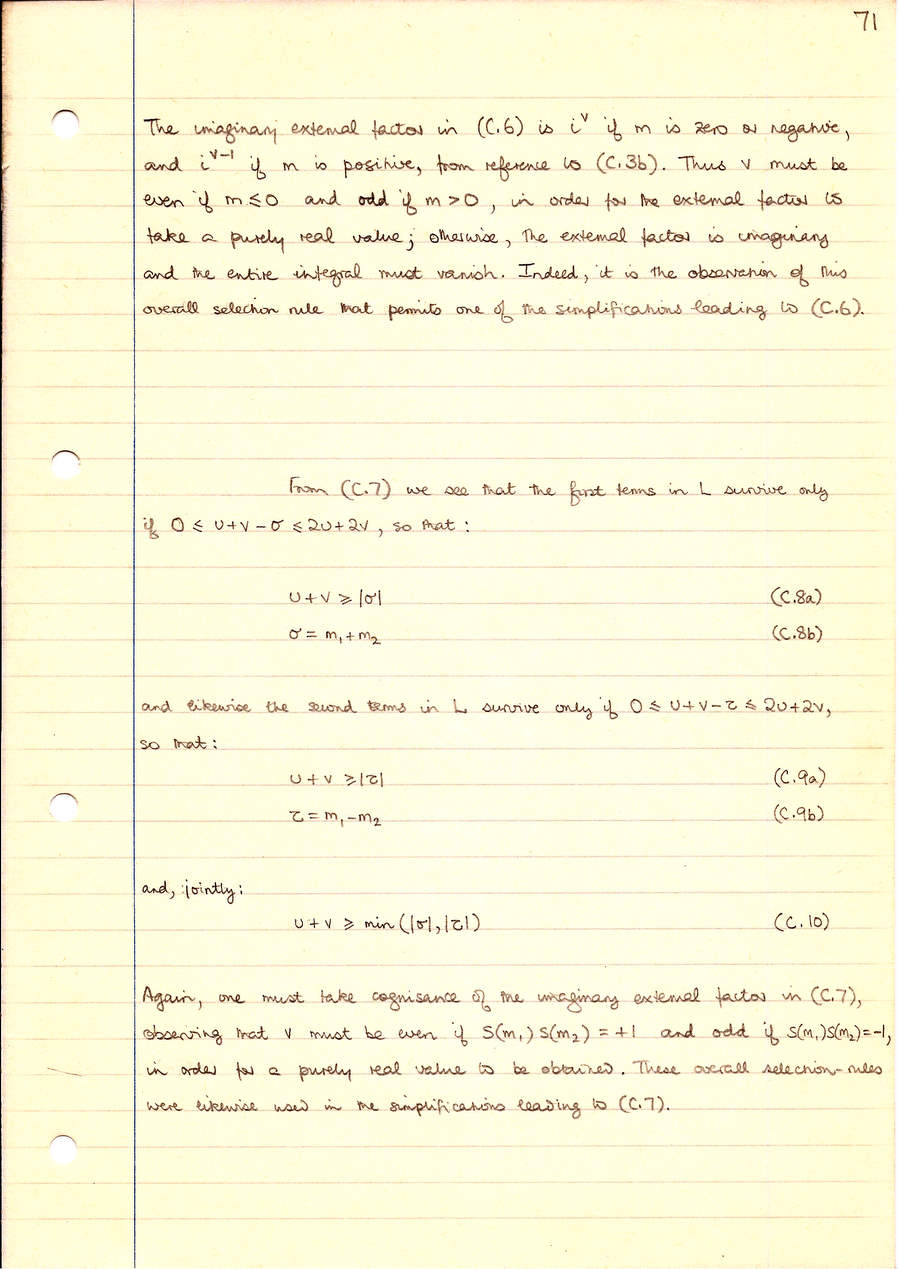 71
The imaginary external factor in (C.6) is i^v if m is zero or negative,
and i^v-1 if m is positive, from reference to (C.3b). Thus v must be
even if m ≤ 0 and odd if m > 0, in order for the external factor to
take a purely real value; otherwise, the external factor is imaginary
and the entire integral must vanish. Indeed, it is the observation of this
overall selection rule that permits one of the simplifications leading to (C.6).
From (C.7) we see that the first terms in L survive only
if 0 ≤ u+v-σ ≤ 2u+2v, so that:
u+v ≥ |σ| (C.8a)
σ = m₁+m₂ (C.8b)
and likewise the second terms in L survive only if 0 ≤ u+v-τ ≤ 2u+2v,
so that:
u+v ≥ |τ| (C.9a)
τ = m₁-m₂ (C.9b)
and, jointly:
u+v ≥ min(|σ|,|τ|) (C.10)
Again, one must take cognisance of the imaginary external factor in (C.7),
observing that v must be even if S(m₁)S(m₂) = +1 and odd if S(m₁)S(m₂)=-1,
in order for a purely real value to be obtained. These overall selection-rules
were likewise used in the simplifications leading to (C.7).